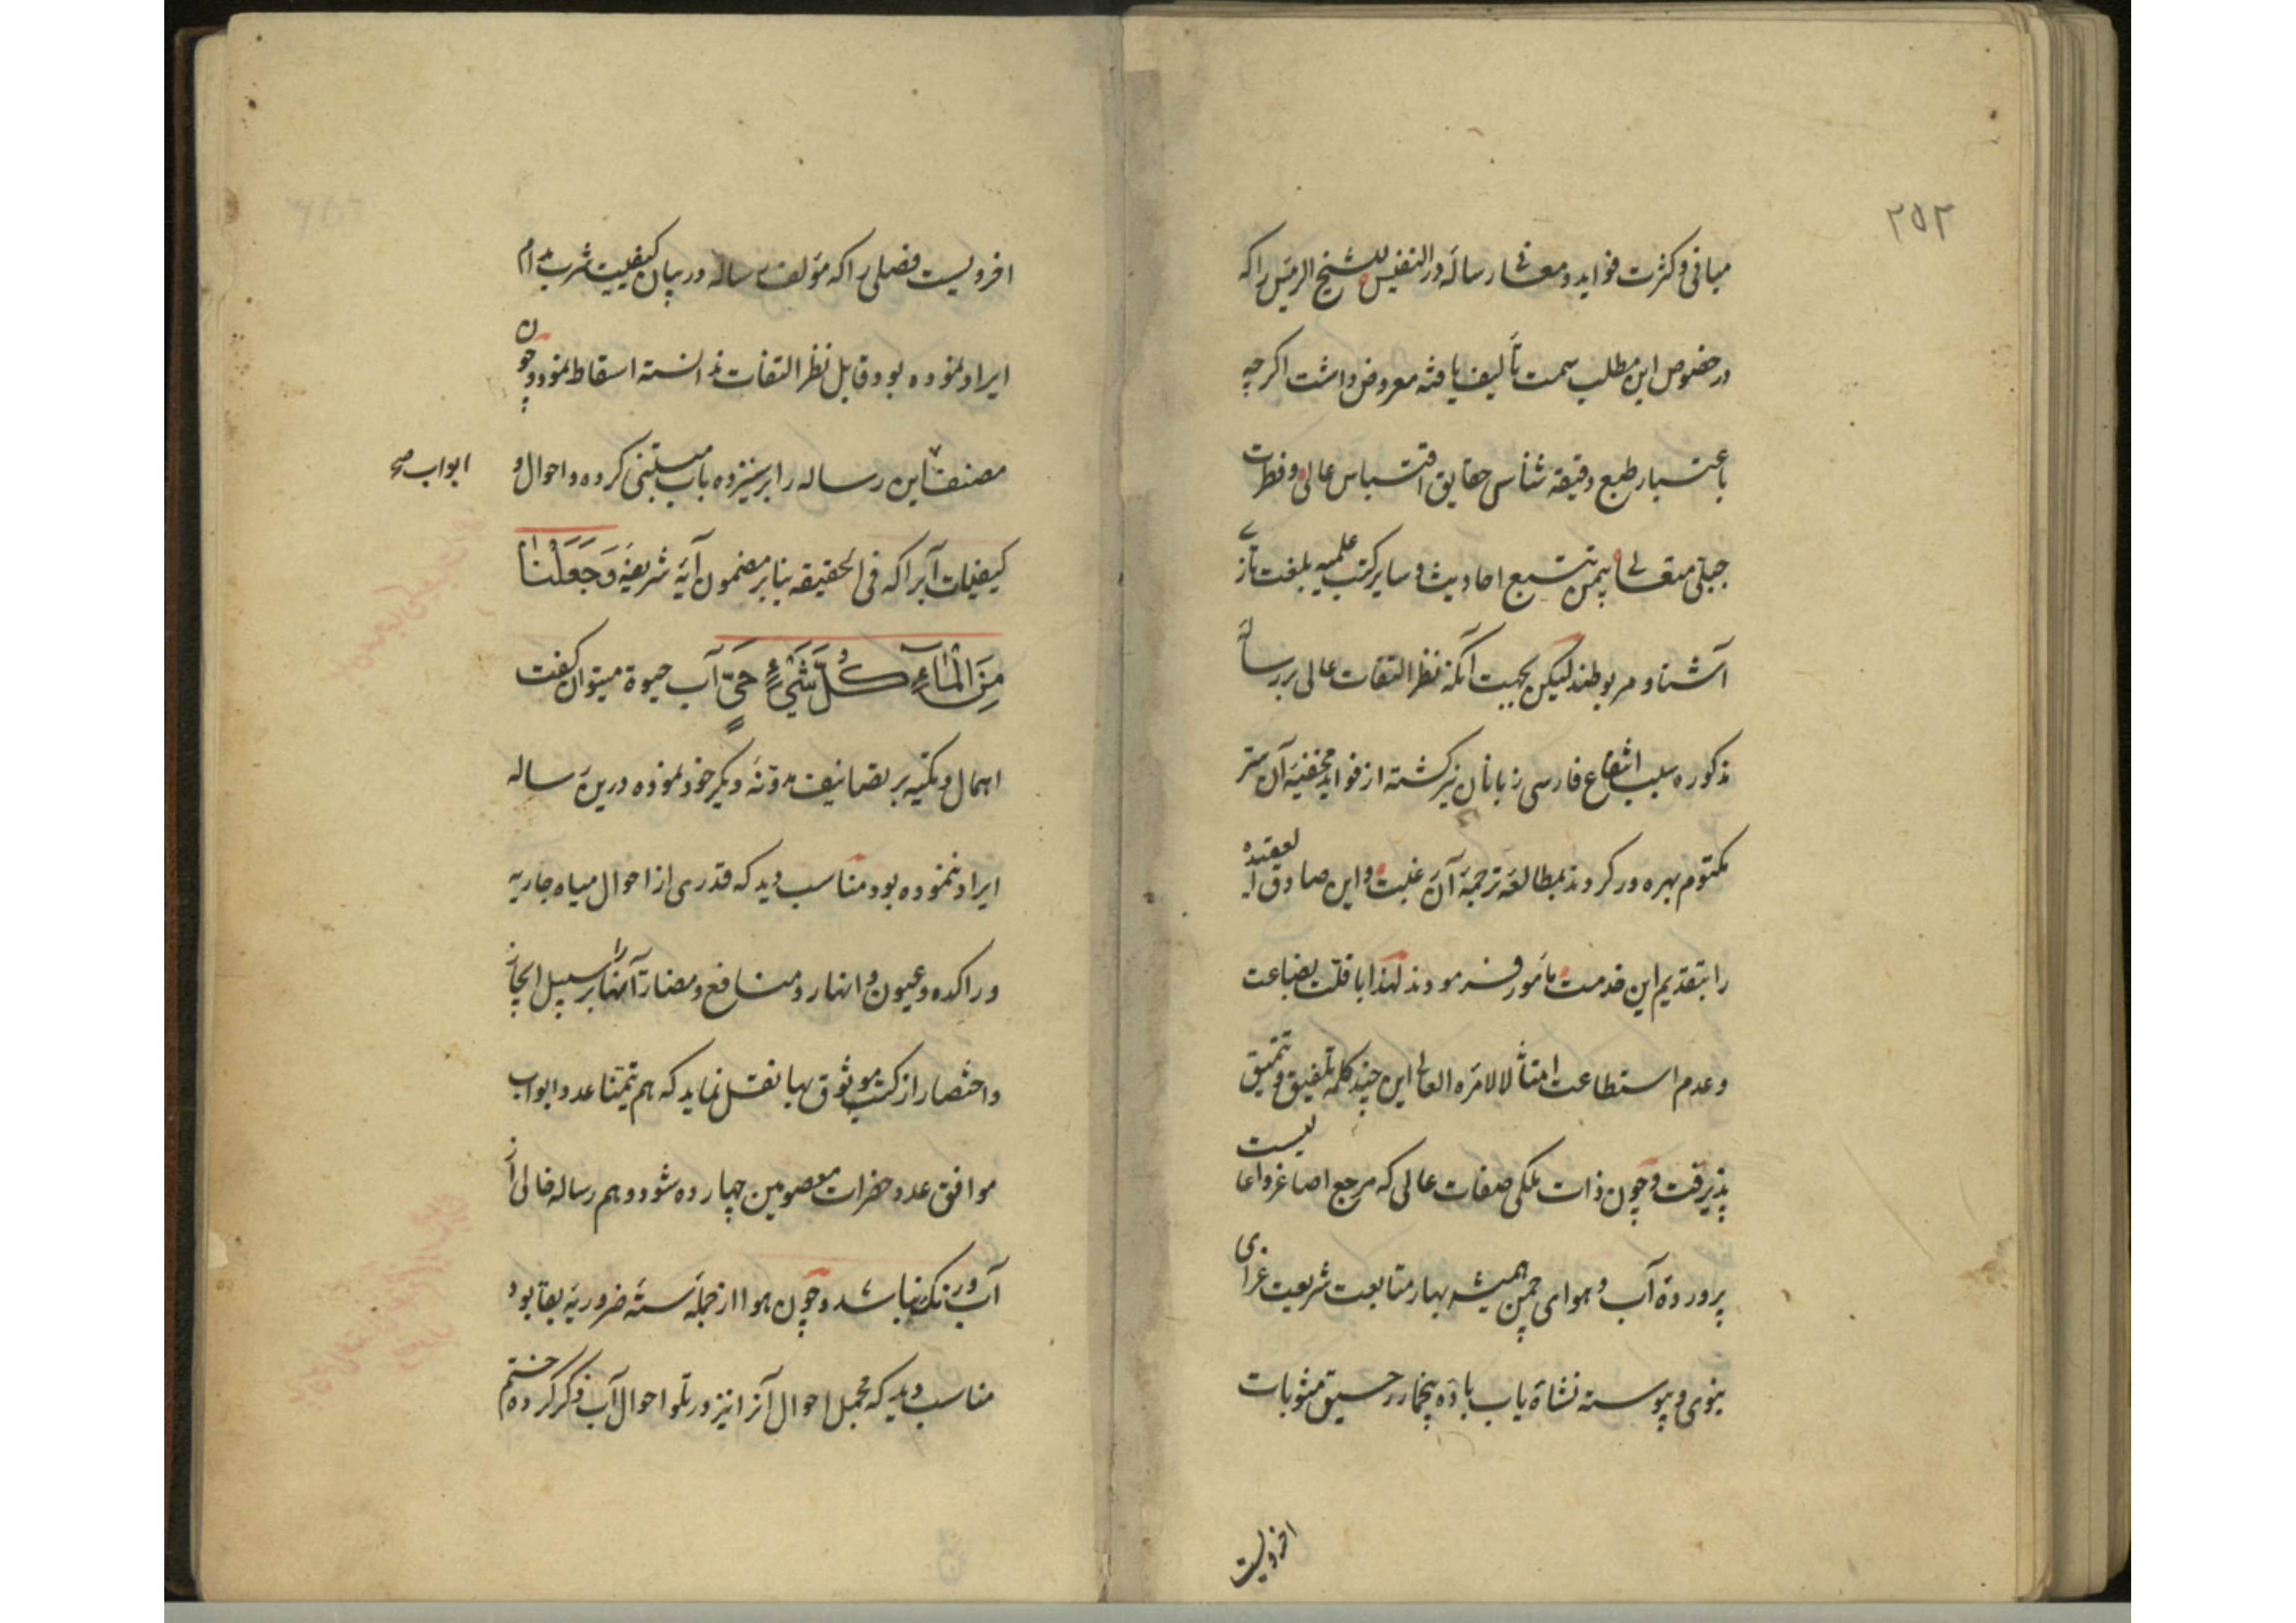 ۲۵۲
مبانی و کثرت فواید و معانی رساله در النفیس للشیخ الرئیس را که
در خصوص این مطلب سمت تألیف یافته معروض داشت اگرچه
باعتبار طبع دقیقه شناس حقایق اقتباس عالی و فطرت
جبلی متعالی بیمن تتبع احادیث و سایر کتب علمیه بلغت تازی
آشنا و مربوطند لیکن بجهت آنکه نظر التفات عالی بر رسالهٔ
مذکوره سلب انتفاع فارسی زبانان نیز گشته از فواید مخفیهٔ آن
مکتوم بهره ور کردند بمطالعه ترجمهٔ آن رغبت و این صادق العقیده
را بتقدیم این خدمت مأمور فرمودند لهذا با قلت بضاعت
و عدم استطاعت امتثالا لامره العالی این چند کلمه تلفیق و تنمیق
پذیرفت و چون ذات ملکی صفات عالی که مرجع اصاغر و اعالیست
پروردهٔ آب و هوای چمن همیشه بهار متابعت شریعت غرای
نبوی و پیوسته نشاة یاب بادهٔ بیخمار رحیق مثوبات
افزویست
افرویست فصلی را که مؤلف رساله در بیان کیفیت شرب مدام
ایراد نموده بود قابل نظر التفات ندانسته اسقاط نمود و چون
مصنف این رساله را بر سیزده باب مبتنی کرده و احوال و
ابواب صح
کیفیات آبرا که فی الحقیقه بنابر مضمون آیهٔ شریفهٔ وَجَعَلْنَا
مِنَ الْمَآءِ كُلَّ شَيْءٍ حَيٍّ آب حیوة میتوان گفت
اهمال و تکیه بر تصانیف مدونهٔ دیگر خود نموده درین رساله
ایراد ننموده بود مناسب دید که قدری از احوال میاه جاریه
و راکده و عیون و انهار و منافع و مضار آنها را بر سبیل ایجاز
و اختصار از کتب موثوق بها نقل نماید که هم تیمّنا عدد ابواب
موافق عدد حضرات معصومین چهارده شود و هم رساله خالی از
آب و رنگ نباشد و چون هوا از جملهٔ ستهٔ ضروریهٔ بقا بود
مناسب دید که مجمل احوال آنرا نیز در تلو احوال آب ذکر کرده ختم